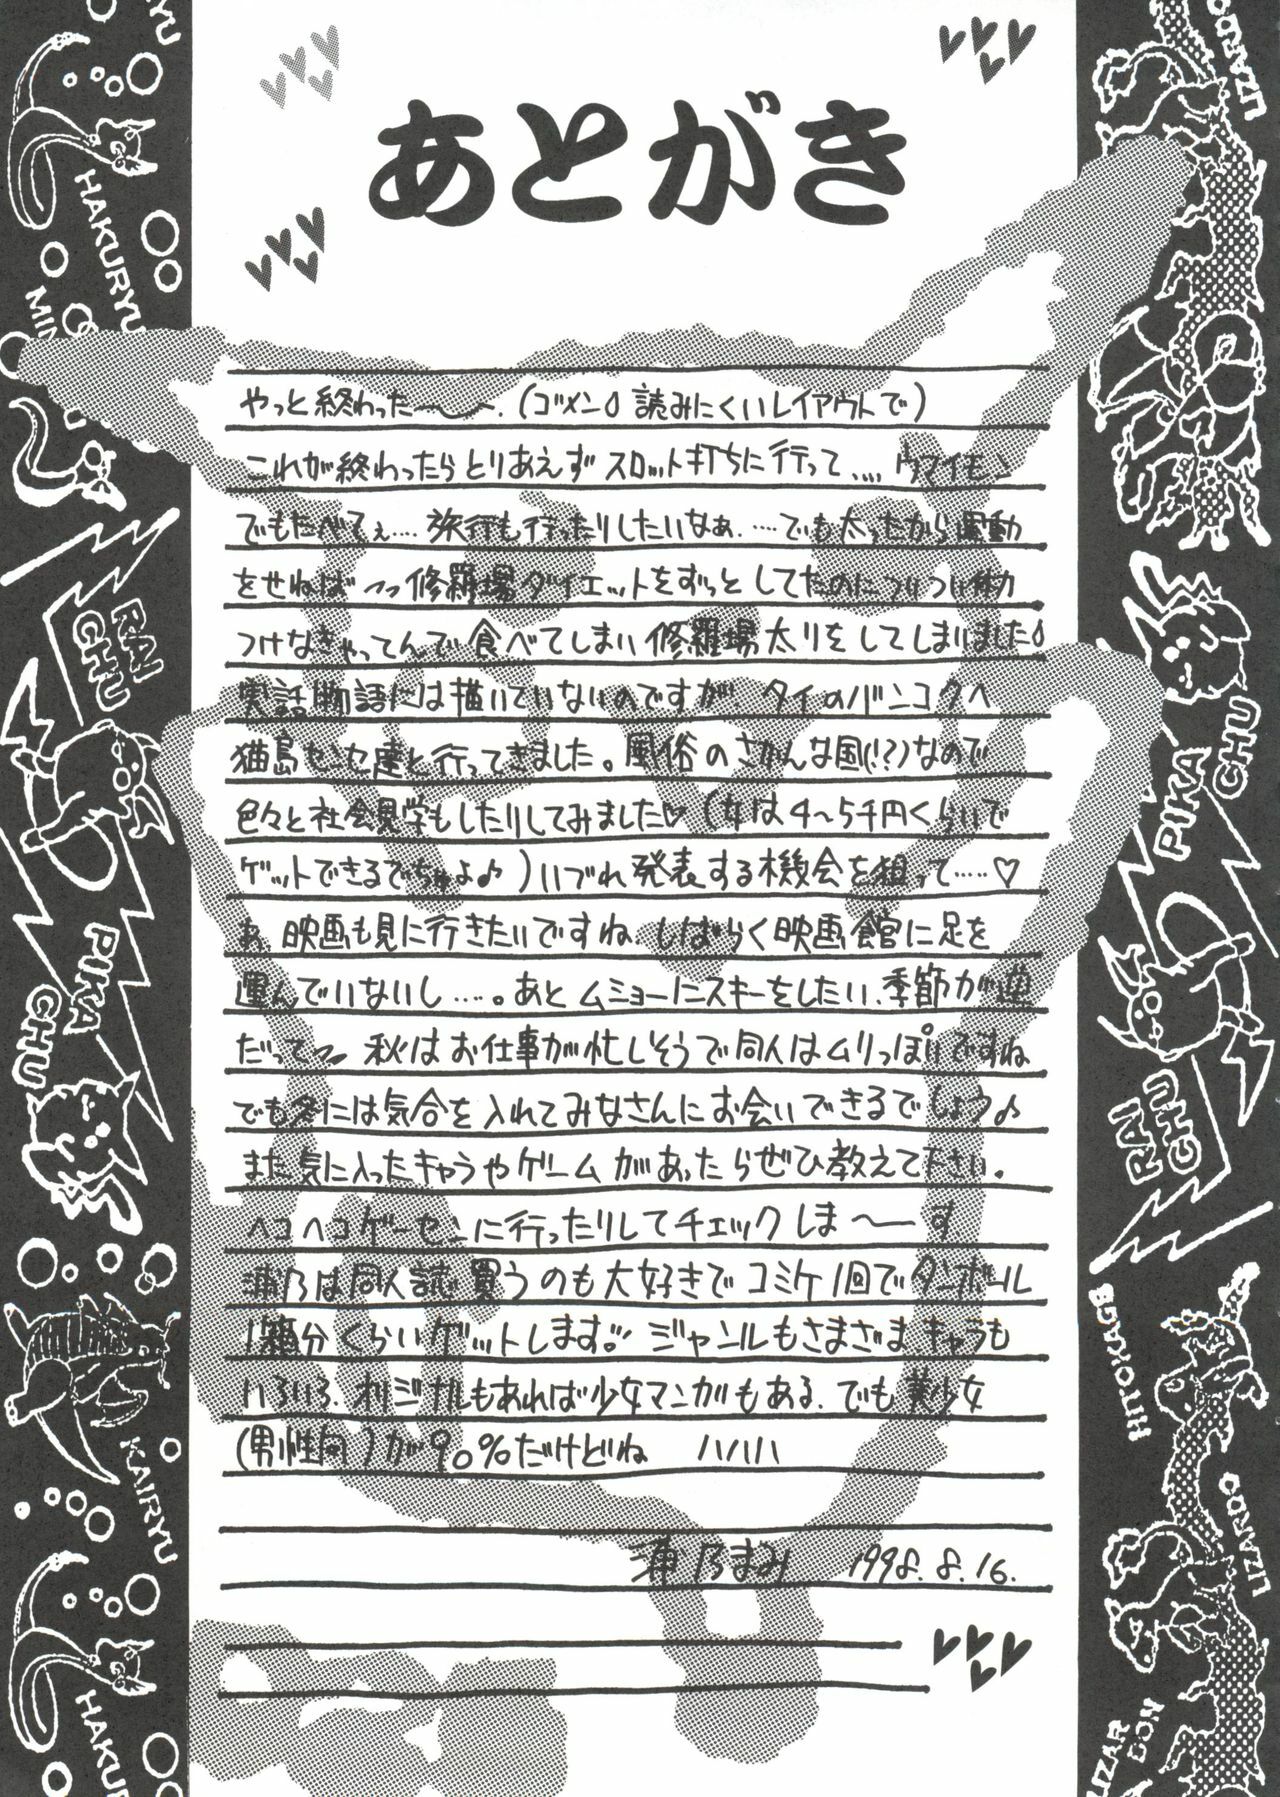 あとがき
やっと終わった〜〜、(ゴメン 読みにくいレイアウトで)
これが終わったらとりあえずスロット打ちに行って、… ウマイモン
でもたべてぇ… 旅行も行ったりしたいなぁ、…でも太ったから運動
をせねば つつ修羅場ダイエットをずっとしてたのについつい体力
つけなきゃってんで食べてしまい修羅場太りをしてしまいました
実話物語には描いていないのですが タイのバンコクへ
猫島センセ達と行ってきました。風俗のさかんな国(!?)なので
色々と社会見学もしたりしてみました♡(女は4〜5千円くらいで
ゲットできるでちゅよ♪)いづれ発表する機会を狙って……♡
あ、映画も見に行きたいですね、しばらく映画館に足を
運んでいないし…。あとムショーにスキーをしたい、季節が逆
だってつ 秋はお仕事が忙しそうで同人はムリっぽいですね
でも冬には気合を入れてみなさんにお会いできるでしょう♪
また気に入ったキャラやゲームがあったらぜひ教えて下さい。
ヘコヘコゲーセンに行ったりしてチェックしま〜す
浦乃は同人誌買うのも大好きでコミケ1回でダンボール
1箱分くらいゲットします。ジャンルもさまざま、キャラも
いろいろ、オリジナルもあれば少女マンガもある、でも美少女
(男性向)が90%だけどね ハハハ
浦乃まみ 1998.8.16.
HAKURYU
MIN
RAI
CHU
PIKA
CHU
KAIRYU
LIZARDO
PIKA
CHU
RAI
CHU
HITOKAGE
LIZARDO
LIZAR
DON